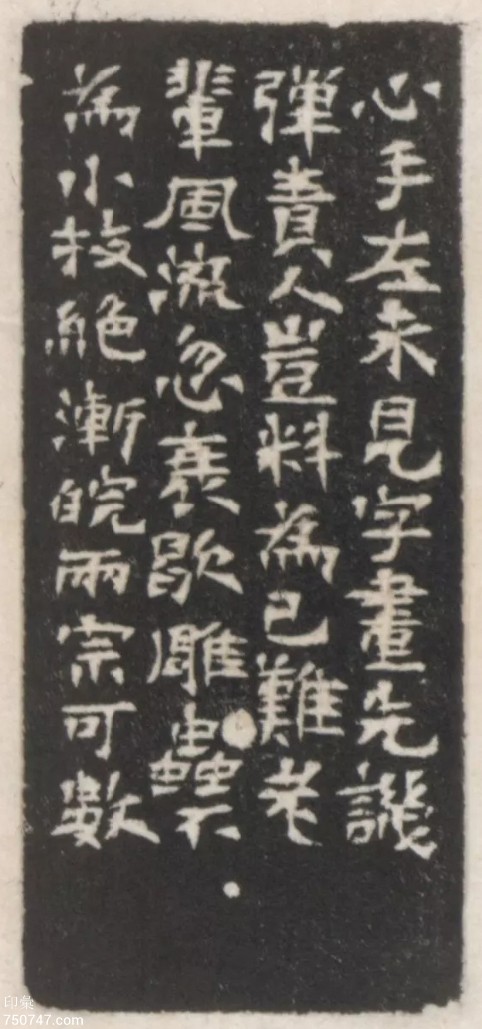 心手左未見字畫先譏
彈責人豈料為己難老
輩風流忽衰歇雕蟲不
為小技絕漸皖兩宗可數
印彙
750747.com